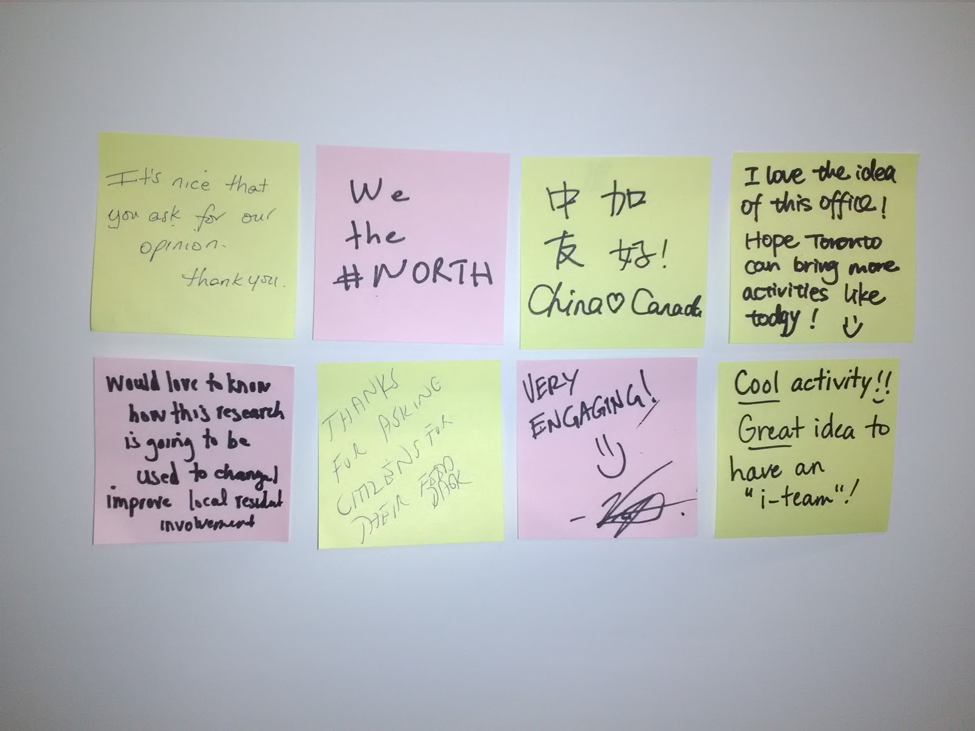 It's nice that
you ask for our
opinion.
thank you.
We
the
#NORTH
中 加
友 好!
China♡Canada
I love the idea
of this office!
Hope Toronto
can bring more
activities like
today!
Would love to know
how this research
is going to be
used to change/
improve local resident
involvement
THANKS
FOR ASKING
CITIZENS FOR
THEIR FEED
BACK
VERY
ENGAGING!
Cool activity!!
Great idea to
have an
"i-team"!